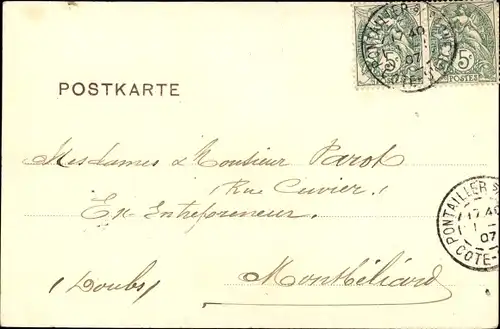 PONTAILLER S
17 40
07
CÔTE-D'OR
5c 5c
POSTES
POSTKARTE
Mesdames & Monsieur Parot
Rue Cuvier,
Ex-Entrepreneur
(Doubs) Montbéliard
PONTAILLER S
17 40
1
07
COTE-